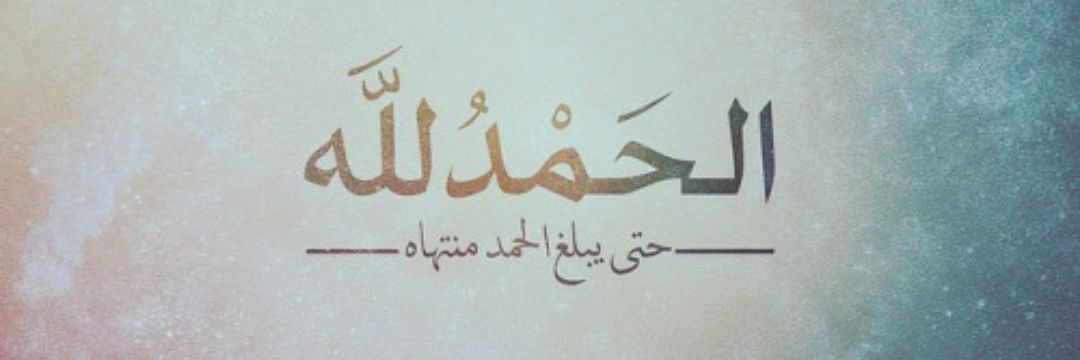 الحَمْدُللَّه
حتى يبلغ الحمد منتهاه